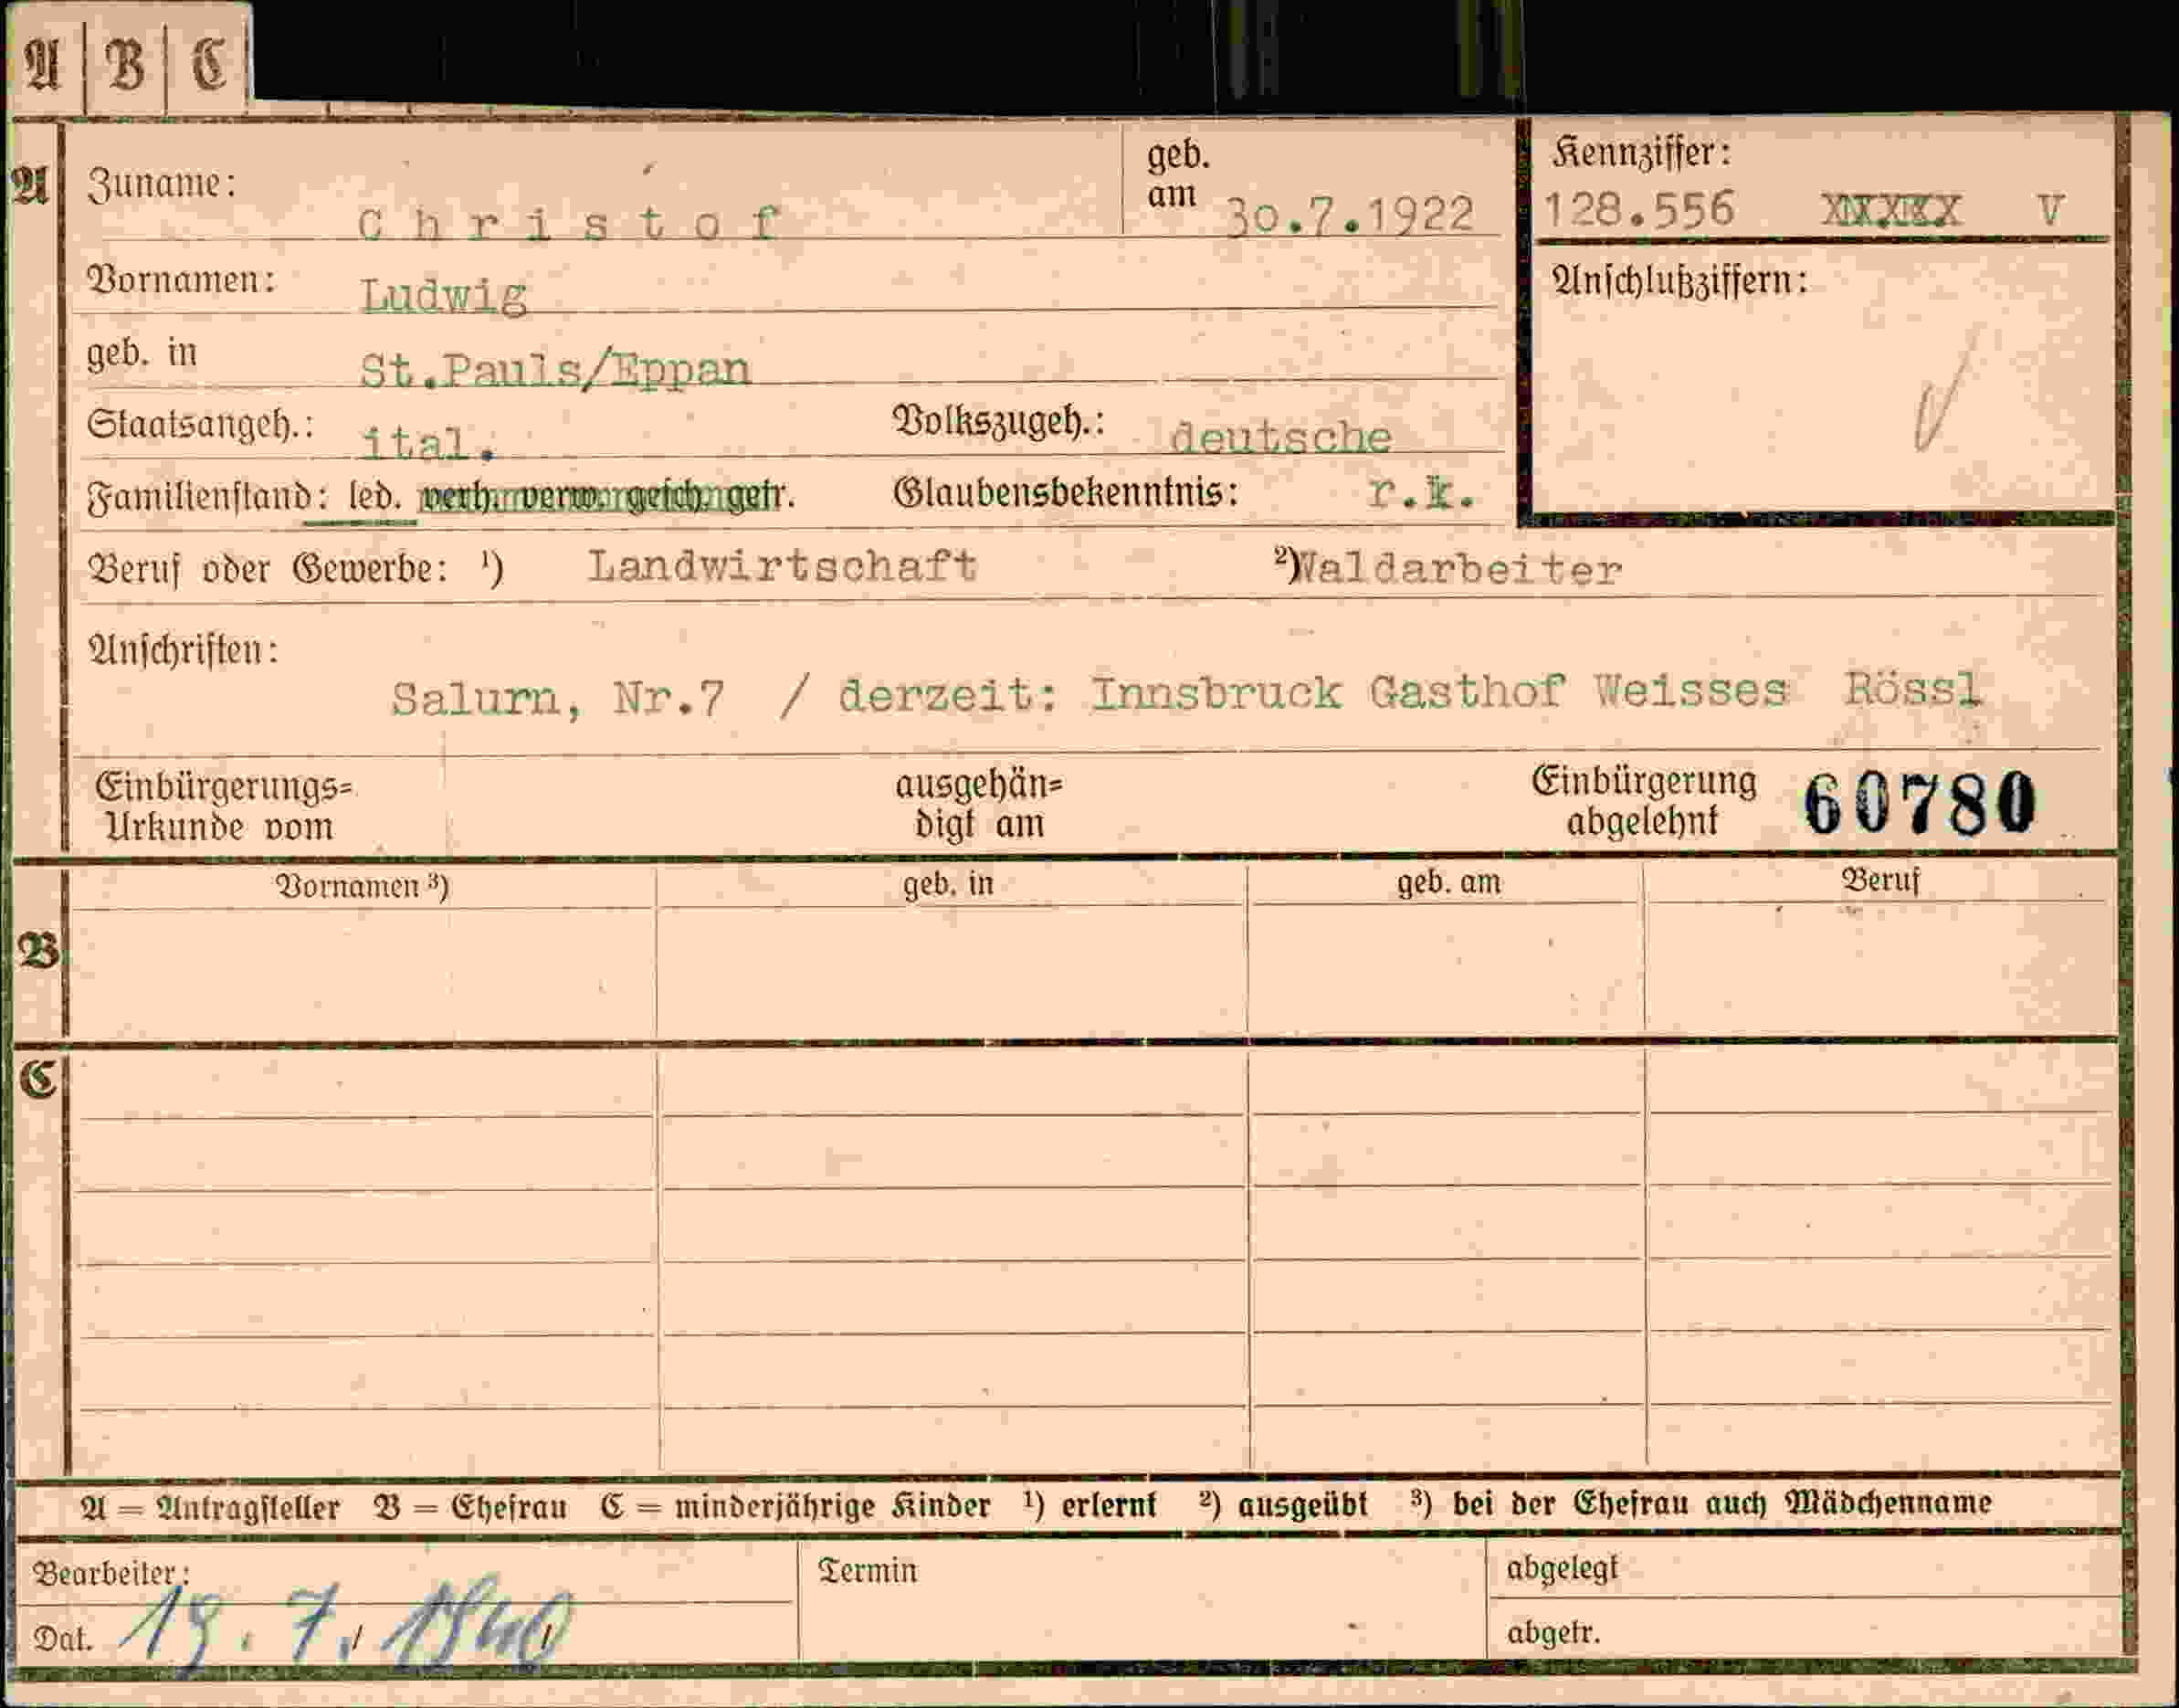 A | B | C
A Zuname: Christof geb. am 30.7.1922 Kennziffer: 128.556 V
Vornamen: Ludwig Anschlußziffern:
geb. in St.Pauls/Eppan
Staatsangeh.: ital. Volkszugeh.: deutsche
Familienstand: led. verh. verw. gesch. getr. Glaubensbekenntnis: r.k.
Beruf oder Gewerbe: ¹) Landwirtschaft ²) Waldarbeiter
Anschriften:
Salurn, Nr.7 / derzeit: Innsbruck Gasthof Weisses Rössl
Einbürgerungs= Urkunde vom ausgehän= digt am Einbürgerung abgelehnt 60780
Vornamen ³) geb. in geb. am Beruf
B
C
A = Antragsteller B = Ehefrau C = minderjährige Kinder ¹) erlernt ²) ausgeübt ³) bei der Ehefrau auch Mädchenname
Bearbeiter: Termin abgelegt
Dat. 19.7.1940 abgetr.